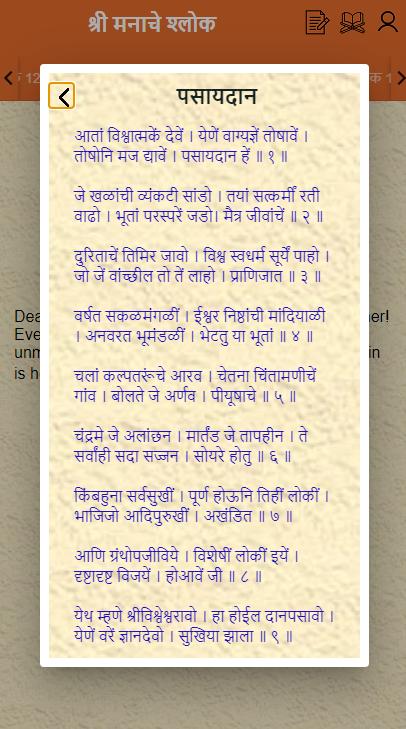 श्री मनाचे श्लोक
पसायदान
आतां विश्वात्मकें देवें । येणें वाग्यज्ञें तोषावें ।
तोषोनि मज द्यावें । पसायदान हें ॥ १ ॥
जे खळांची व्यंकटी सांडो । तयां सत्कर्मीं रती
वाढो । भूतां परस्परें जडो। मैत्र जीवांचें ॥ २ ॥
दुरिताचें तिमिर जावो । विश्व स्वधर्म सूर्यें पाहो ।
जो जें वांच्छील तो तें लाहो । प्राणिजात ॥ ३ ॥
वर्षत सकळमंगळीं । ईश्वर निष्ठांची मांदियाळी
। अनवरत भूमंडळीं । भेटतु या भूतां ॥ ४ ॥
चलां कल्पतरूंचे आरव । चेतना चिंतामणीचें
गांव । बोलते जे अर्णव । पीयूषाचे ॥ ५ ॥
चंद्रमे जे अलांछन । मार्तंड जे तापहीन । ते
सर्वांही सदा सज्जन । सोयरे होतु ॥ ६ ॥
किंबहुना सर्वसुखीं । पूर्ण होऊनि तिहीं लोकीं ।
भाजिजो आदिपुरुखीं । अखंडित ॥ ७ ॥
आणि ग्रंथोपजीविये । विशेषीं लोकीं इयें ।
दृष्टादृष्ट विजयें । होआवें जी ॥ ८ ॥
येथ म्हणे श्रीविश्वेश्वरावो । हा होईल दानपसावो ।
येणें वरें ज्ञानदेवो । सुखिया झाला ॥ ९ ॥